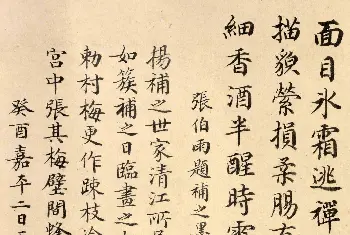 面目氷霜逃禪
描貌縈損柔腸
細香酒半醒時
張伯雨題補之墨
楊補之世家清江所
如簇補之日臨畫之
勅村梅更作疎枝冷
宫中張其梅壁間蜂
癸酉嘉平二日